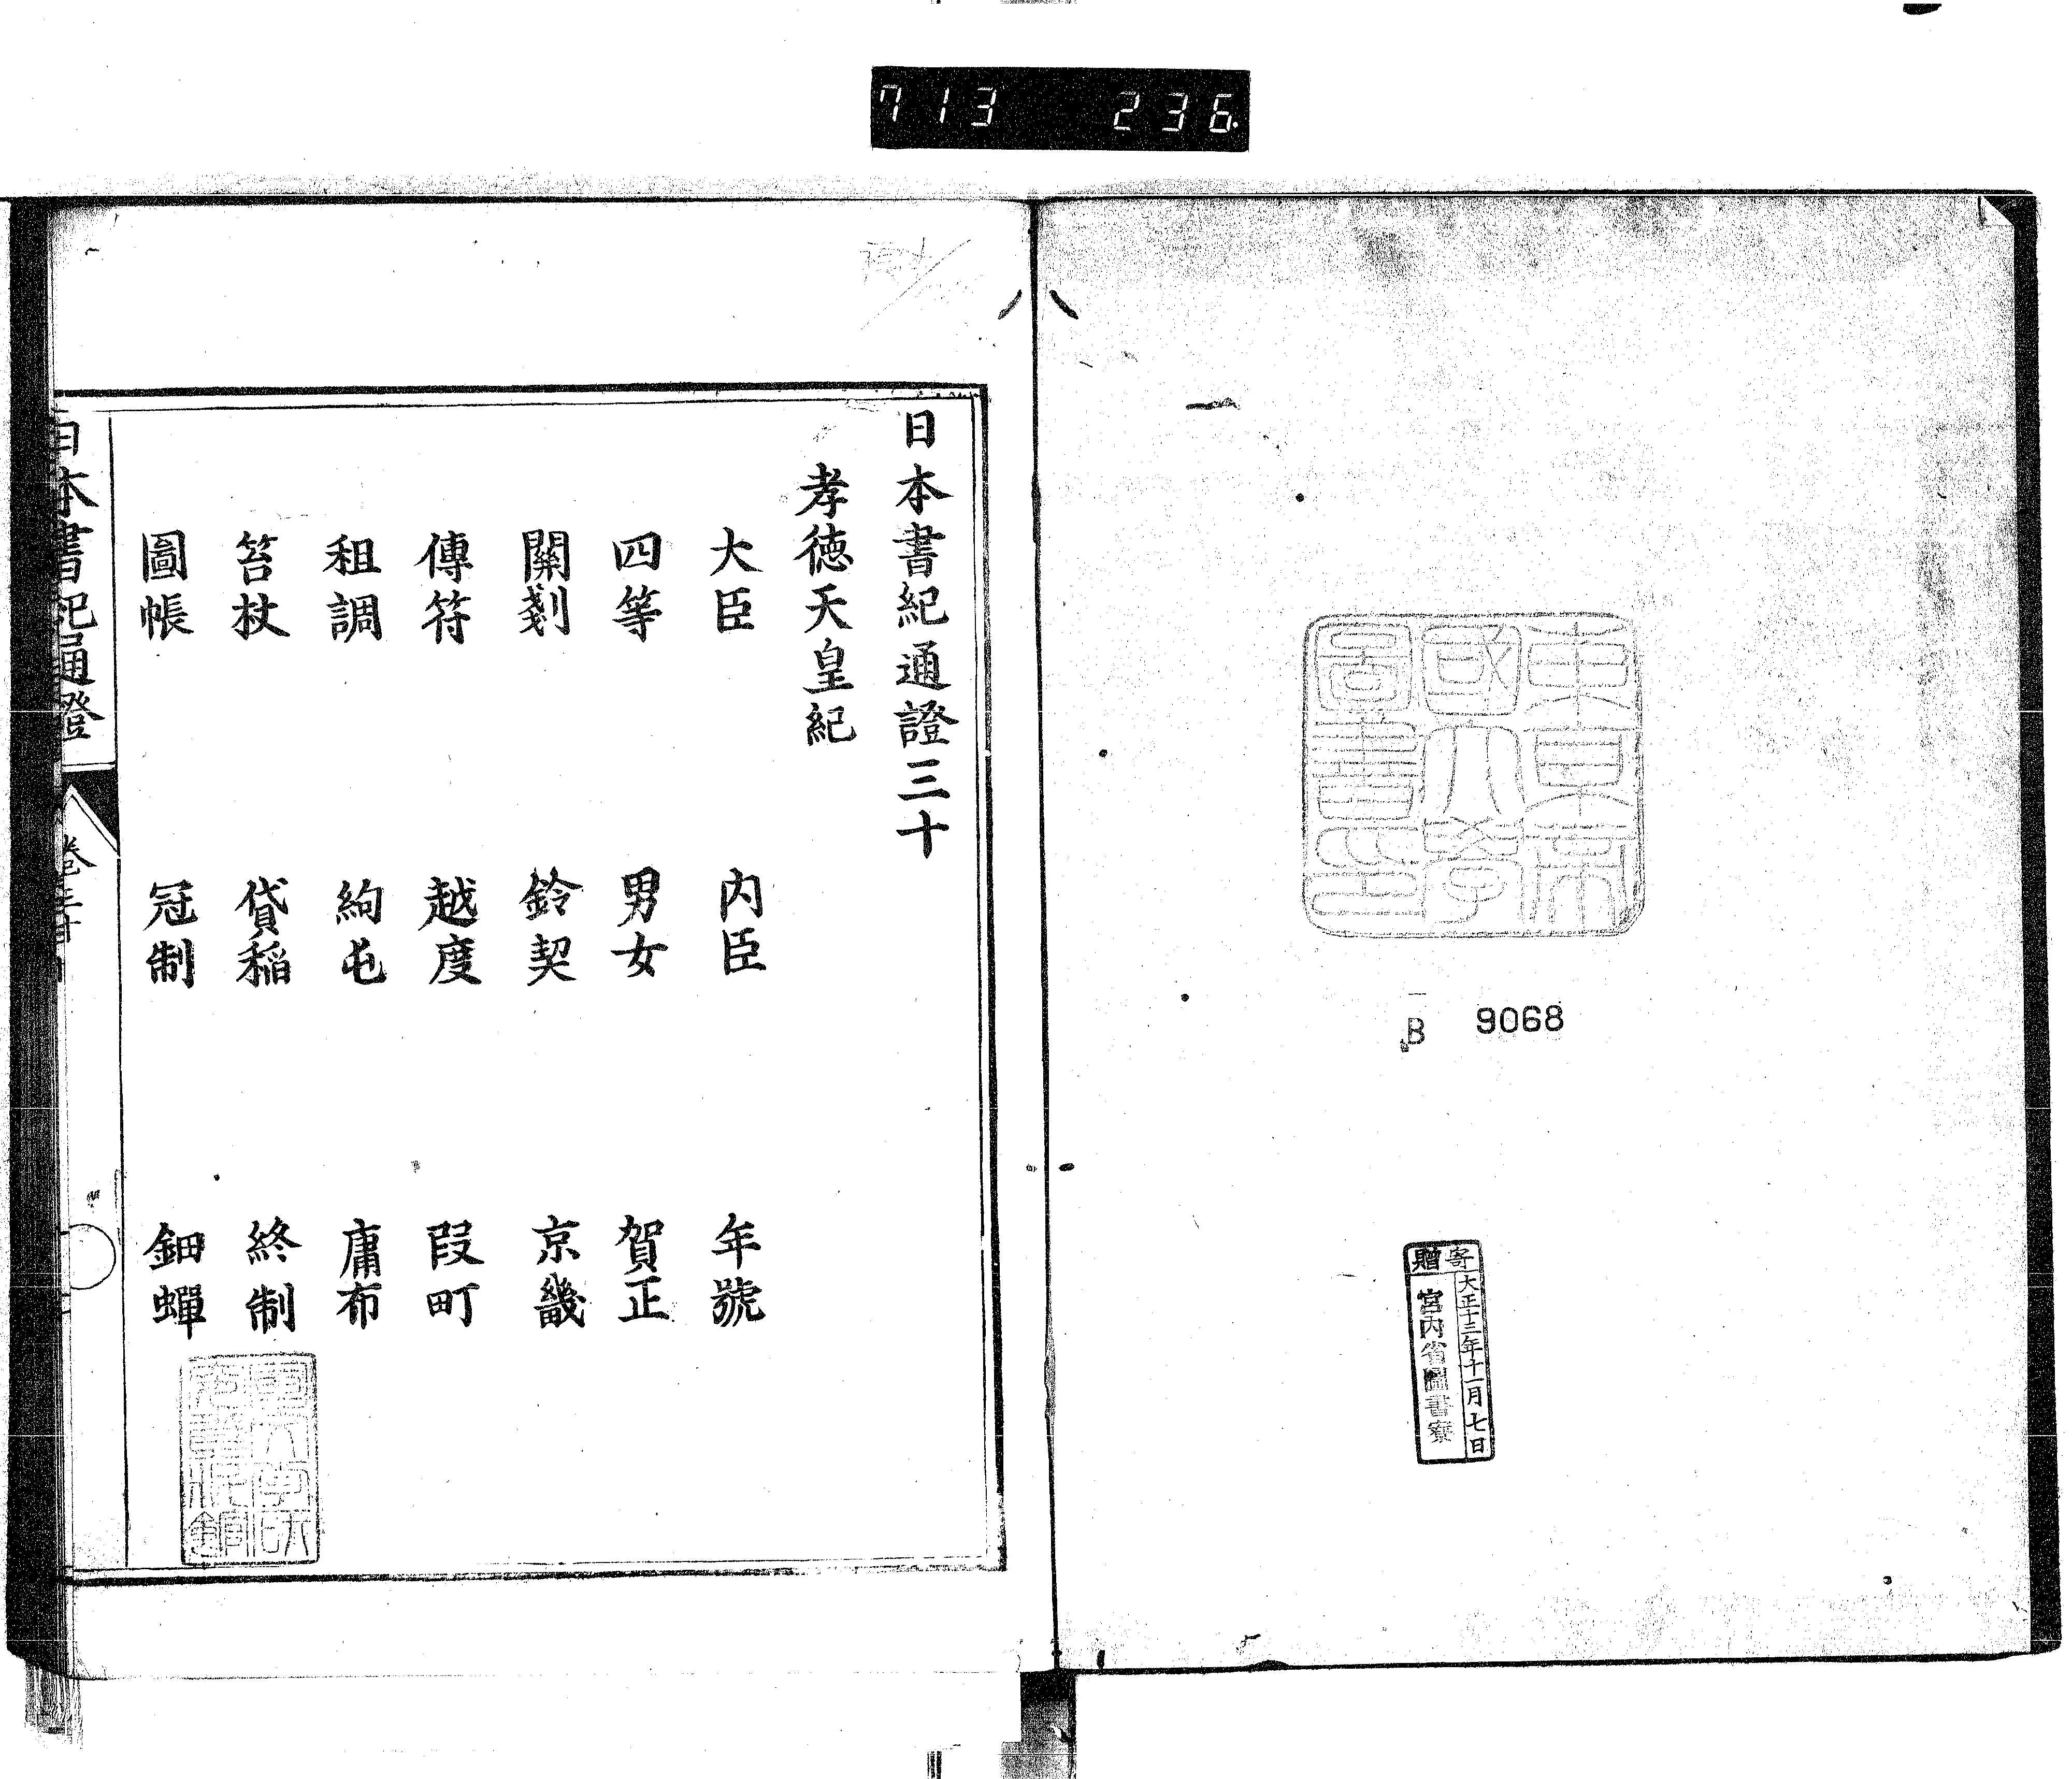 713 236
東京帝
國大學
圖書之印
B 9068
寄贈
大正十三年十一月七日
宮内省圖書寮
日本書紀通證三十
孝徳天皇紀
大臣 内臣 年號
四等 男女 賀正
關剗 鈴契 京畿
傳符 越度 段町
租調 絇屯 庸布
笞杖 貸稲 終制
圖帳 冠制 鈿蟬
日本書紀通證
卷三十